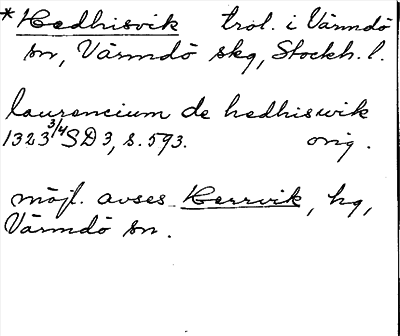 *Hedhisvik trol. i Värmdö
sn, Värmdö skg, Stockh. l.
laurencium de hedhiswik
1323 3/4 SD 3, s. 593. orig.
möjl. avses Herrvik, hg,
Värmdö sn.